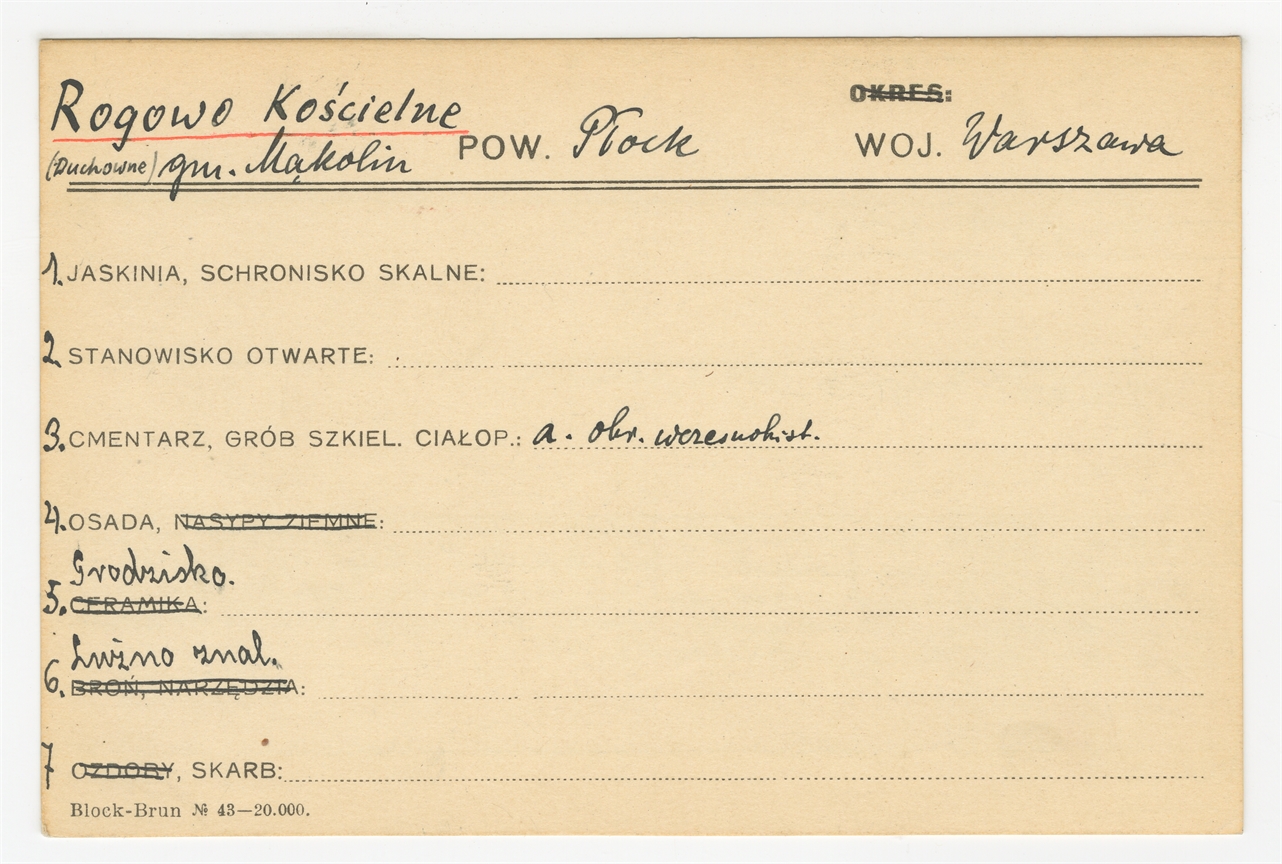 OKRES:
Rogowo Kościelne
(Duchowne) gm. Mąkolin POW. Płock WOJ. Warszawa
1. JASKINIA, SCHRONISKO SKALNE:
2. STANOWISKO OTWARTE:
3. CMENTARZ, GRÓB SZKIEL. CIAŁOP.: a. okr. wczesnohist.
4. OSADA, NASYPY ZIEMNE:
Grodzisko.
5. CERAMIKA:
Luźno znal.
6. BROŃ, NARZĘDZIA:
7 OZDOBY, SKARB:
Block-Brun № 43—20.000.